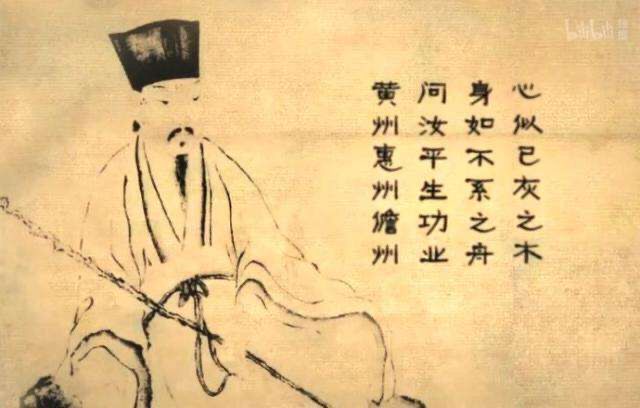 心似已灰之木
身如不系之舟
问汝平生功业
黄州惠州儋州
bilibili